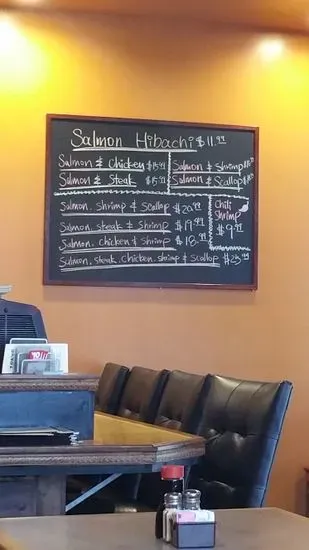 Salmon Hibachi $11.99
Salmon & Chicken $15.99
Salmon & Steak $15.99
Salmon & Shrimp
Salmon & Scallop
Salmon, shrimp & Scallop $20.99
Salmon, steak & Shrimp $19.99
Salmon, chicken & Shrimp $18.99
Salmon, steak, chicken, shrimp & scallop $25.99
Chili Shrimp
$9.99